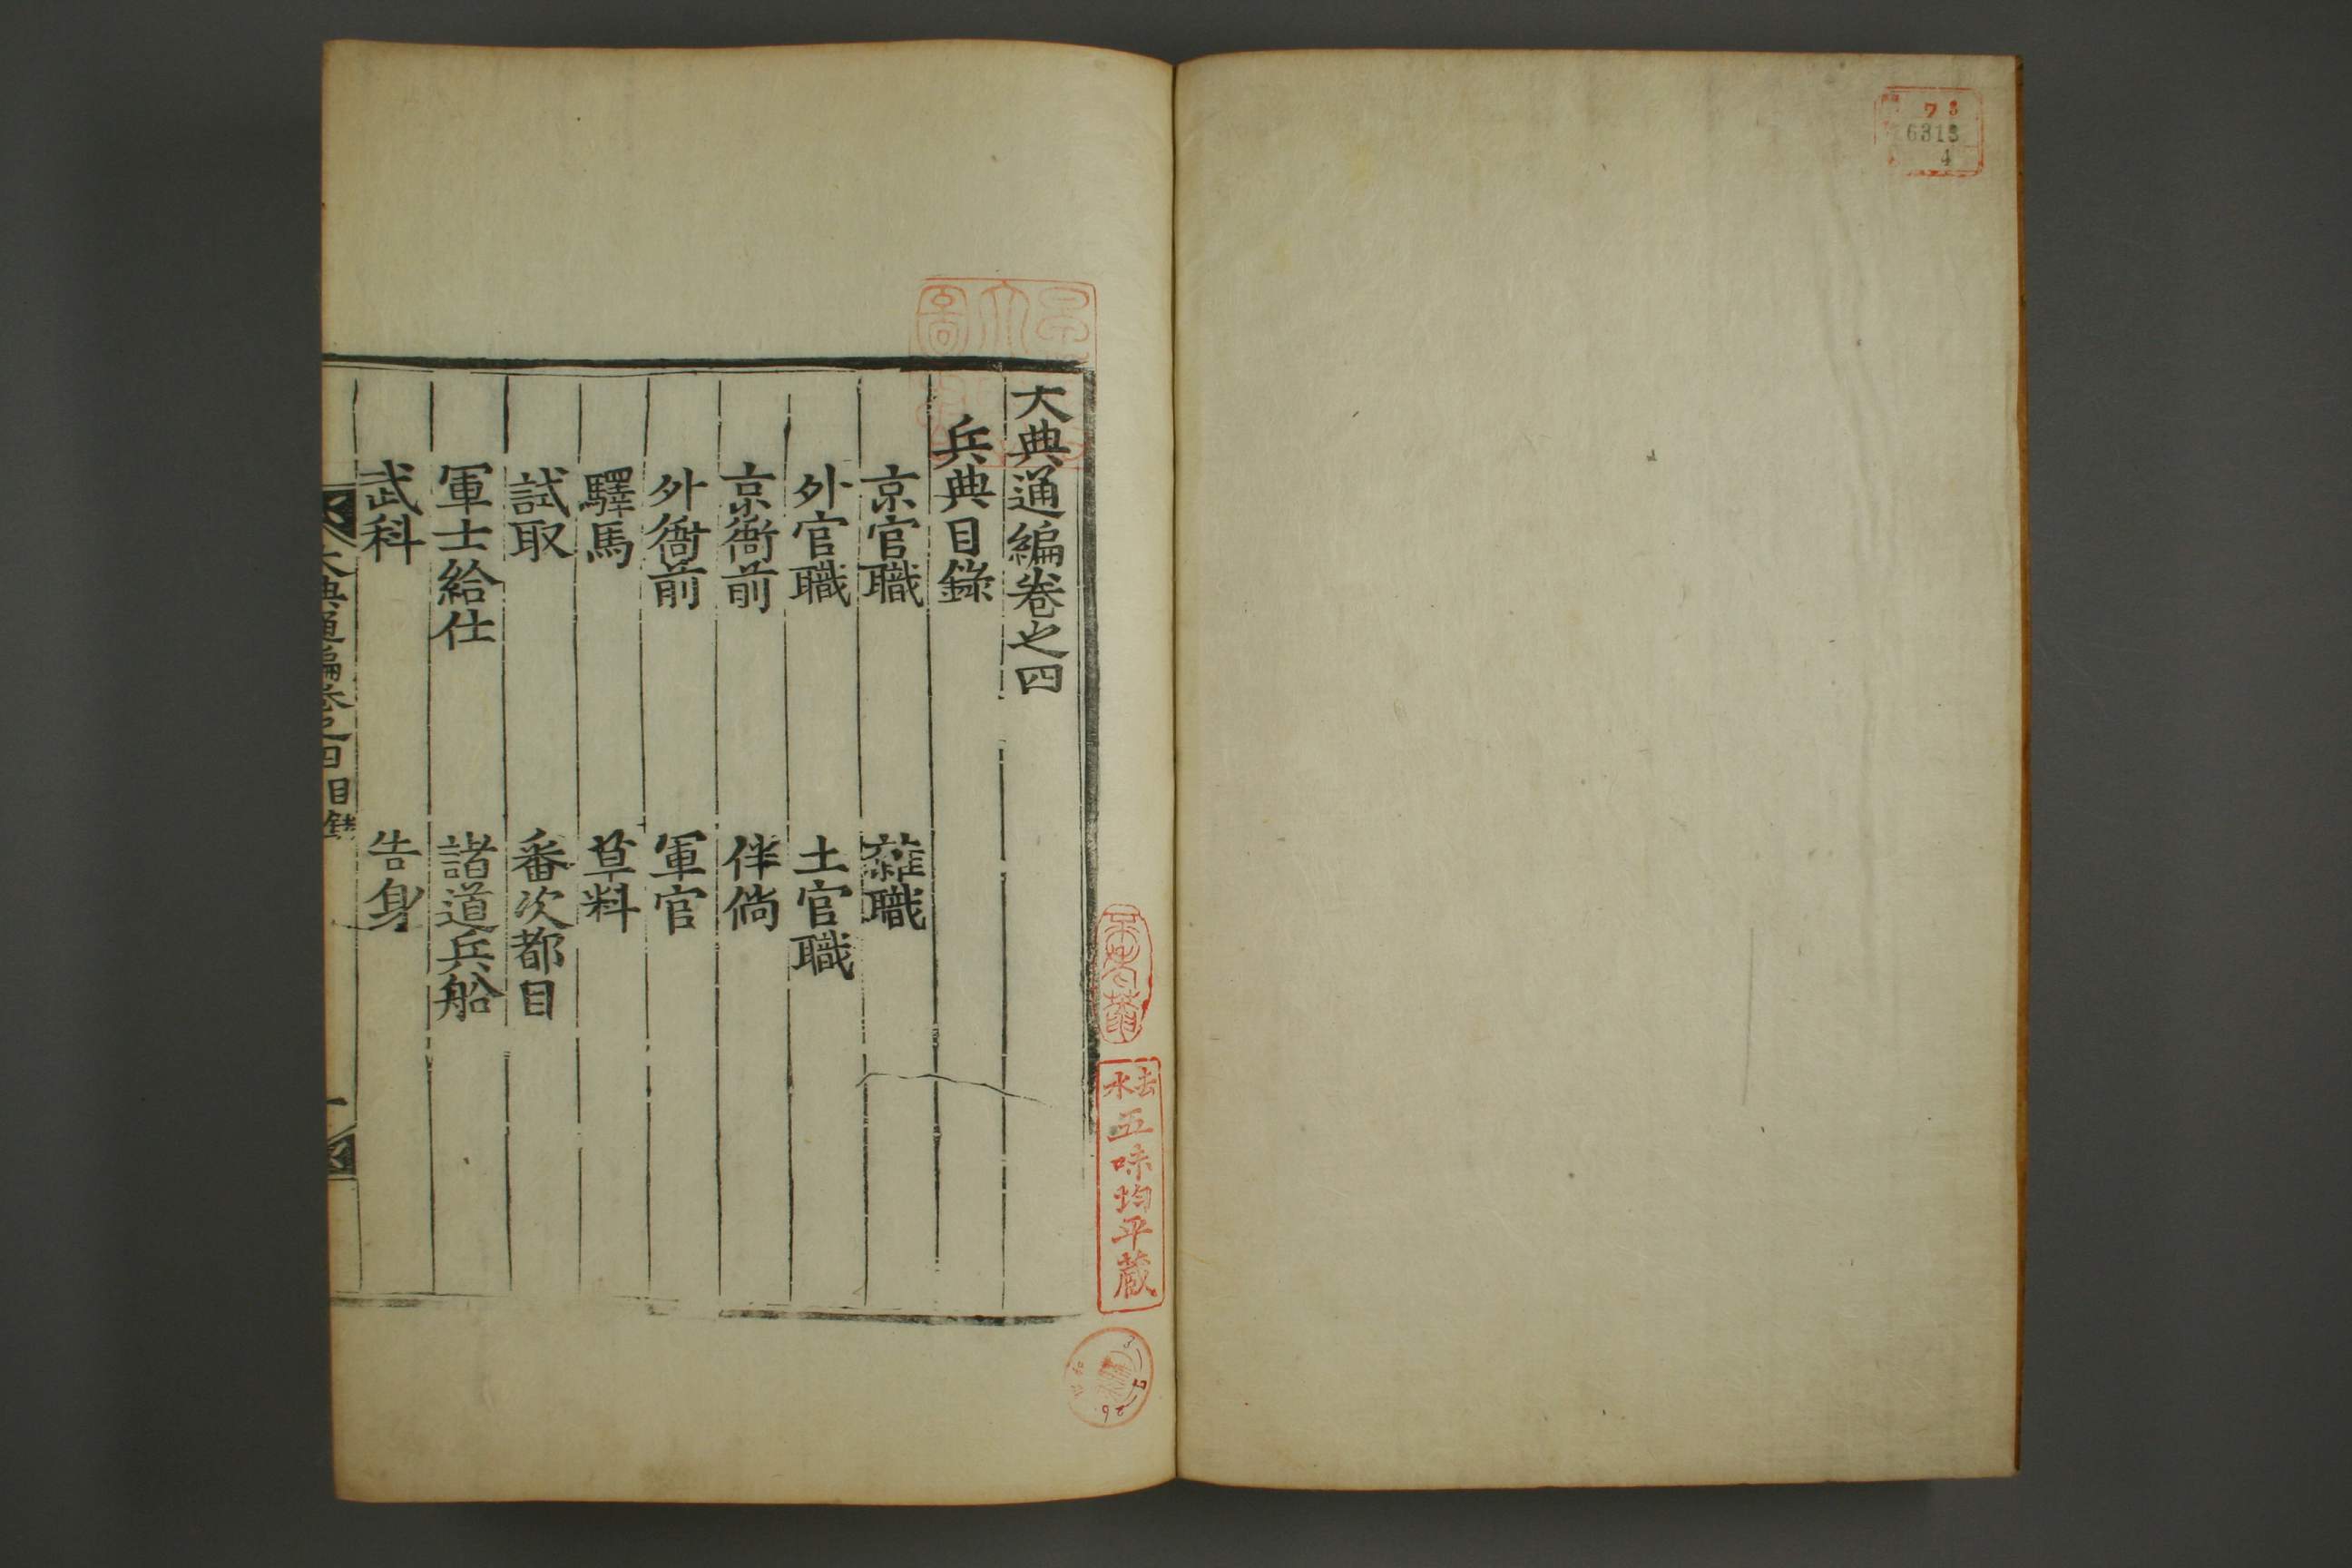 大典通編卷之四
兵典目錄
京官職
雜職
外官職
土官職
京衙前
伴倘
外衙前
軍官
驛馬
草料
試取
番次都目
軍士給仕
諸道兵船
武科
告身
大典通編卷之四 目錄
一
五味均平蔵
7 3
6313
4